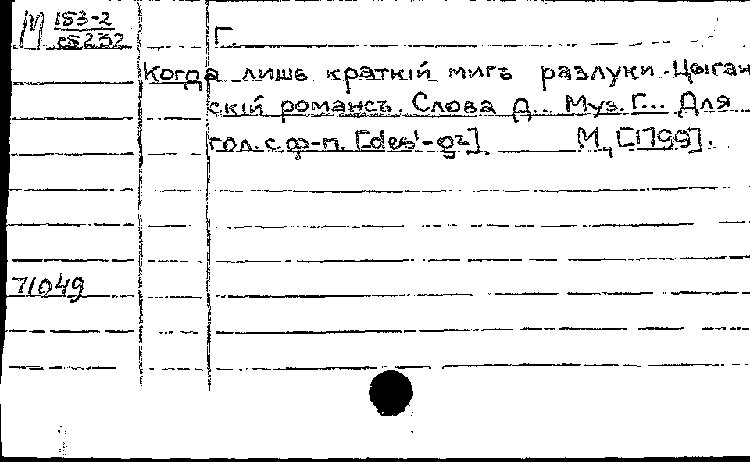 М 153-2
Г.
Когда лишь краткiй мигъ разлуки. Цыган
скiй романсъ. Слова Д... Муз. Г... Для
гол. с ф-п. [des¹-g²] М., [1799].
71049